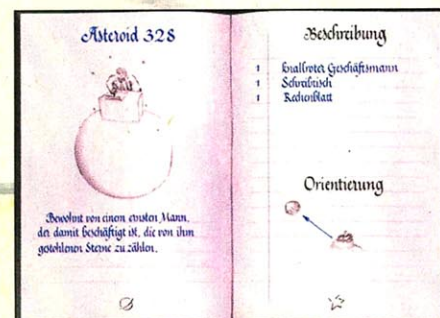 Asteroid 328
Bewohnt von einem ernsten Mann,
der damit beschäftigt ist, die von ihm
gestohlenen Sterne zu zählen.
Beschreibung
1 knallroter Geschäftsmann
1 Schreibtisch
1 Rechenblatt
Orientierung